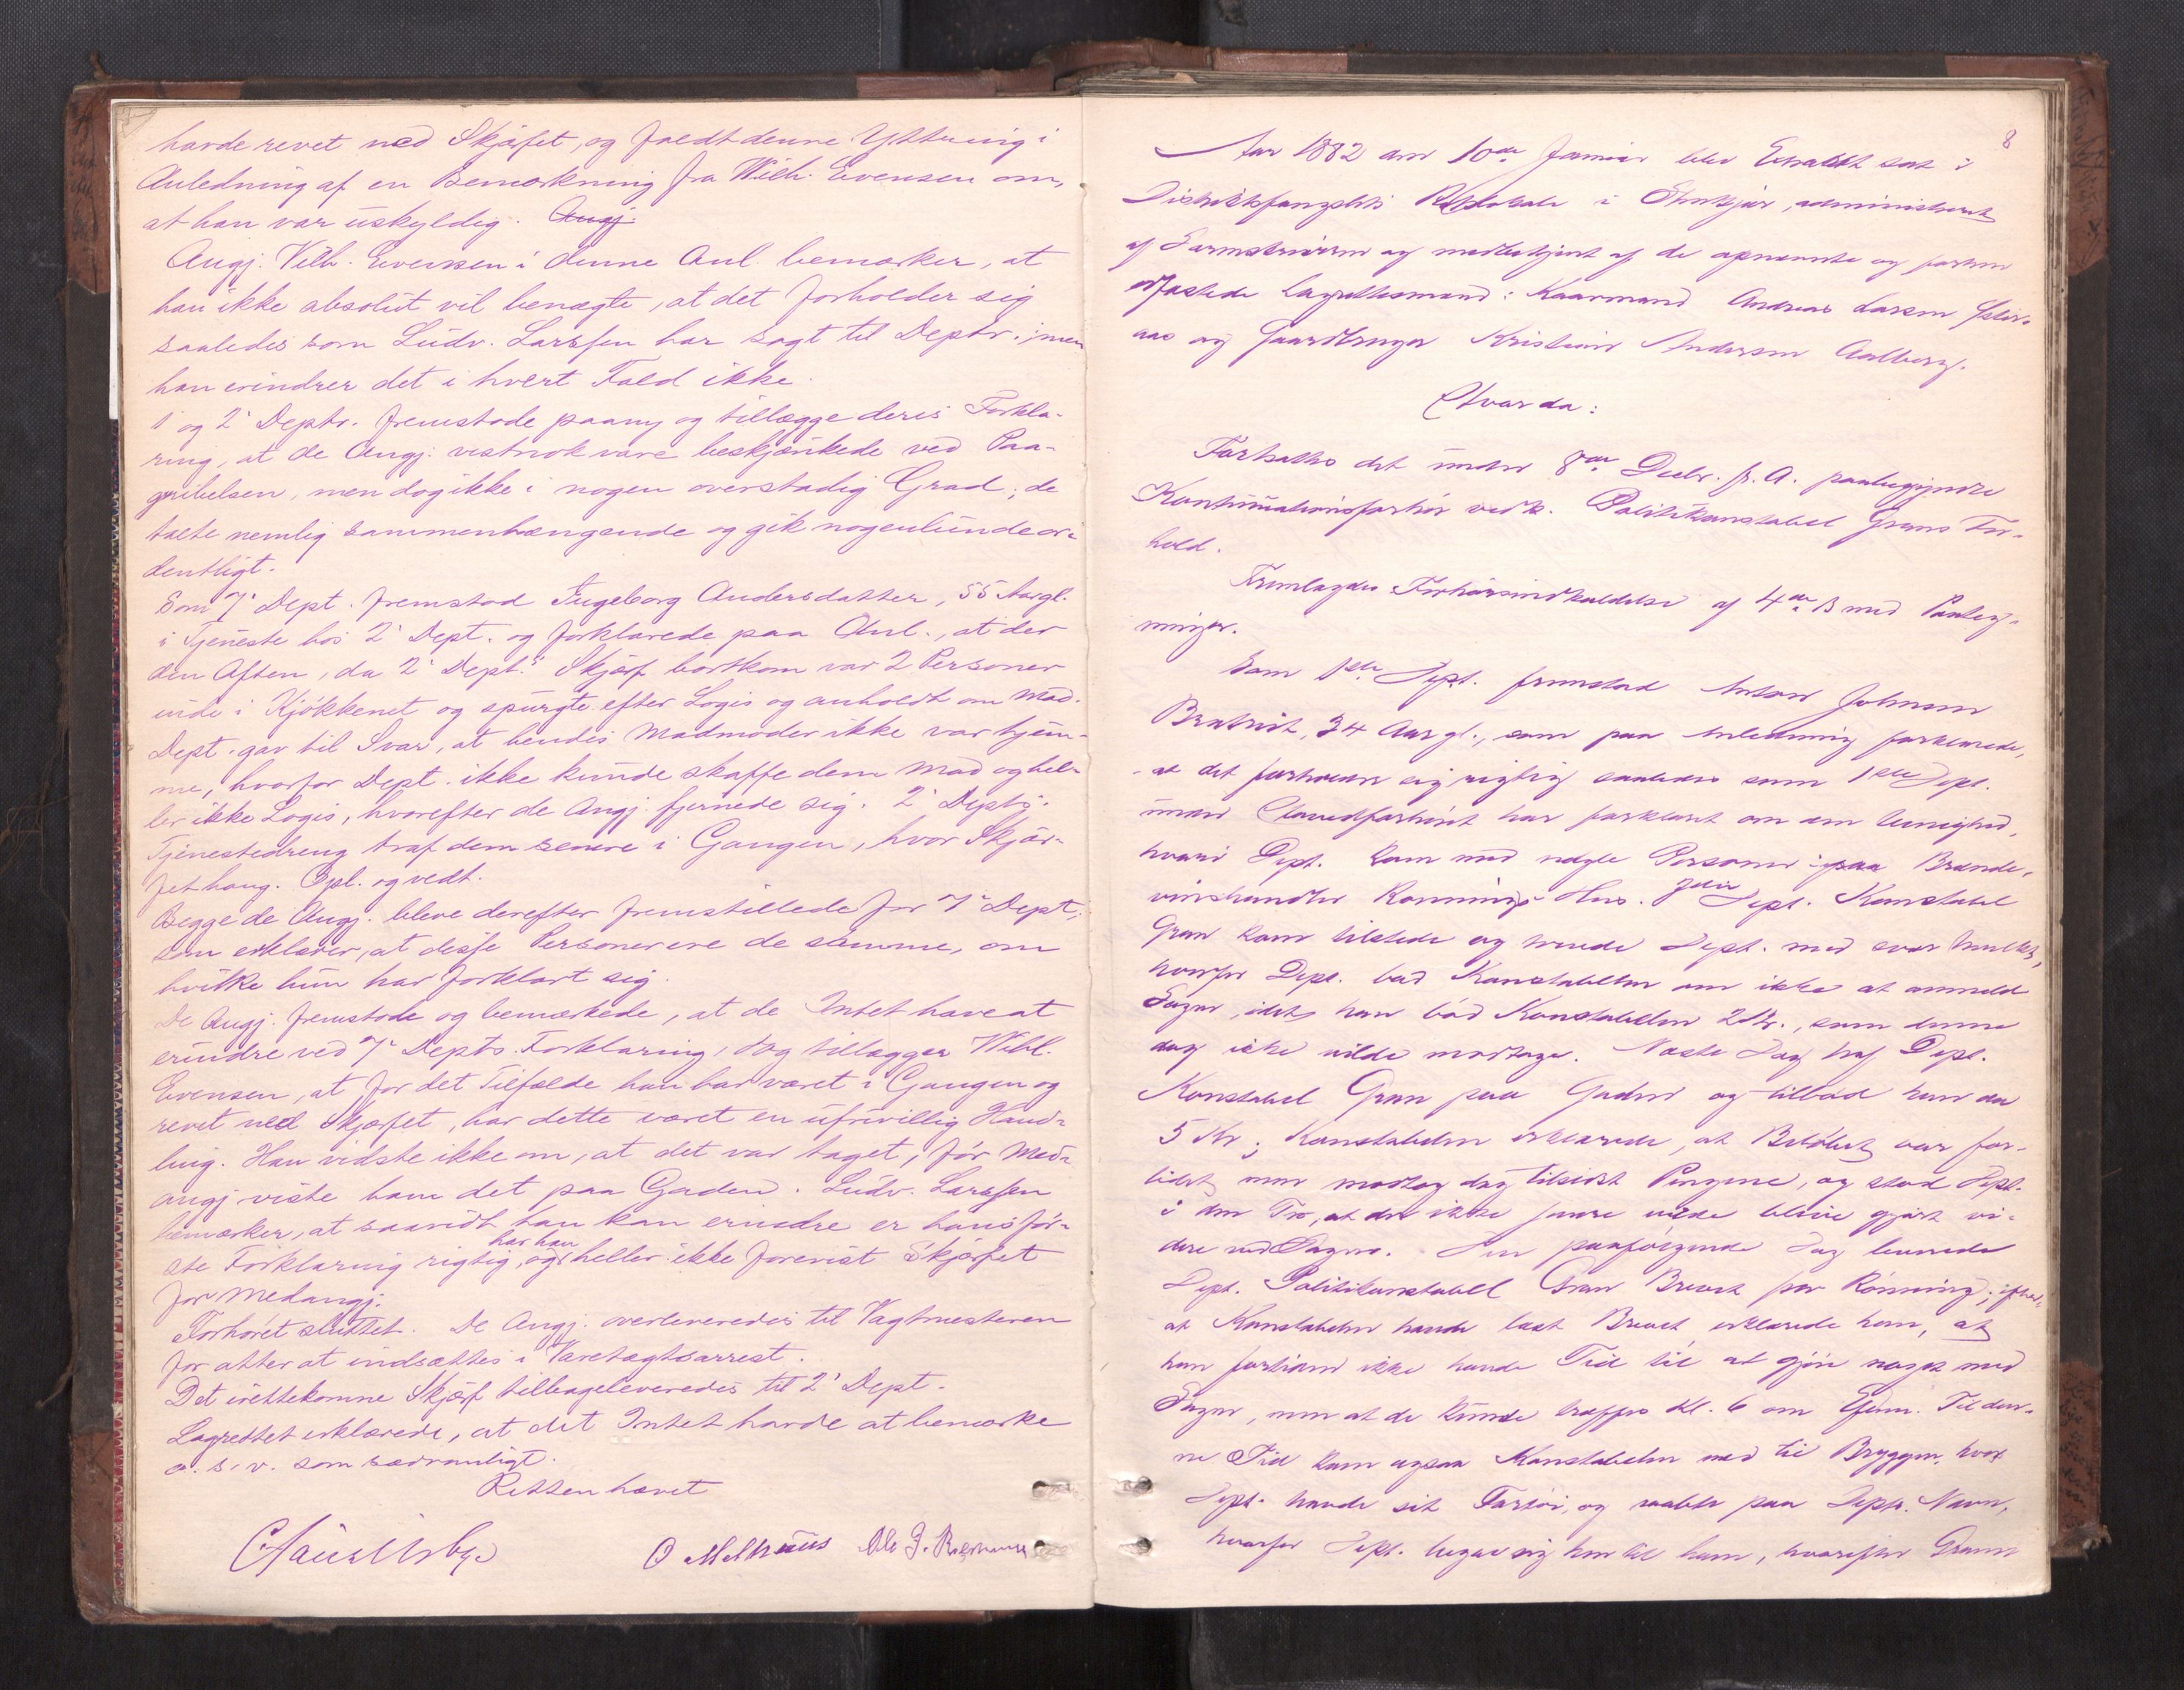 havde revet ned Skjærfet, og faldt denne Yttring i
Anledning af en Bemærkning fra Wilh. Evensen om,
at han var uskyldig. Angj.
Angj. Vilh. Evensen i denne Anl. bemærker, at
han ikke absolut vil benægte, at det forholder sig
saaledes som Ludv. Larssen har sagt til Deptr.; men
han erindrer det i hvert Fald ikke.
1' og 2' Deptr. fremstode paany og tillægge deres Forkla-
ring, at de Angj. vistnok vare beskjænkede ved Paa-
gribelsen, men dog ikke i nogen overstadig Grad; de
talte nemlig sammenhængende og gik nogenlunde or-
dentligt.
Som 7' Dept. fremstod Ingeborg Andersdatter, 55 Aar gl.
i Tjeneste hos 2' Dept. og forklarede paa Anl., at der
den Aften, da 2' Dept.s Skjærf bortkom var 2 Personer
inde i Kjøkkenet og spurgte efter Logis og anholdt om Mad.
Dept. gav til Svar, at hendes Madmoder ikke var hjem-
me, hvorfor Dept. ikke kunde skaffe dem Mad og hel-
ler ikke Logis, hvorefter de Angj. fjernede sig. 2' Depts.
Tjenestedreng traf dem senere i Gangen, hvor Skjær-
fet hang. Opl. og vedt.
Begge de Angj. bleve derefter fremstillede for 7' Dept.,
som erklærer, at disse Personer ere de samme, om
hvilke hun har forklart sig.
De Angj. fremstode og bemærkede, at de Intet have at
erindre ved 7' Depts. Forklaring, dog tillægger Vilh.
Evensen, at for det Tilfælde han har været i Gangen og
revet ned Skjærfet, har dette været en ufrivillig Hand-
ling. Han vidste ikke om, at det var taget, før Med-
angj. viste ham det paa Gaden. Ludv. Larssen
bemærker, at saavidt han kan erindre er hans før-
ste Forklaring rigtig, og har han heller ikke forevist Skjærfet
for Medangj.
Forhøret sluttet. De Angj. overleveredes til Vagtmesteren
for atter at indsættes i Varetægtsarrest.
Det irettekomne Skjærf tilbageleveredes til 2' Dept.
Lagrettet erklærede, at det Intet havde at bemærke
o. s. v. som sædvanligt.
Retten hævet
O Melhuus Ole J.
8
Aar 1882 den 10de Januar blev Extraret sat i
Distriktsfængslets Retslokale i Stenkjær, administreret
af Sorenskriveren og medbetjent af de opnævnte og forhen
edfæstede Lagrettesmænd: Kaarmand Andreas Larsen
aas og Gaardbruger Kristian Andersen Aalberg.
Hvorda:
Fortsattes det under 8de Decbr. f. A. paabegyndte
Kontinuationsforhør vedk. Politikonstabel Grans For-
hold.
Fremlagdes Forhørsindkaldelse af 4de ds med Paateg-
ninger.
Som 1ste Dept. fremstod Anton Johnsen
Bratreit, 34 Aar gl., som paa Anledning forklarede,
at det forholder sig rigtig saaledes som 1ste Dept.
under har forklaret om den Uenighed,
hvori Dept. kom med ndgle Personer paa Brænde-
vinshandler Rønnings Hus. Dept. Konstabel
Gran kom tilstede og truede Dept. med svær Mulkt,
hvorfor Dept. bad Konstabelen om ikke at anmelde
Sagen, idet han bød Konstabelen 2 Kr., som denne
dog ikke vilde modtage. Næste Dag traf Dept.
Konstabel Gran paa Gaden og tilbød ham da
5 Kr; Konstabelen erklærede, at Beløbet var for-
lidet, men modtog dog tilsidst Pengene, og stod Dept.
i den Tro, at der ikke skulde blive gjort vi-
dere ved Sagen. Den paafølgende Dag leverede
Dept. Politikonstabel Gran Brevet fra Rønning; efter
at Konstabelen havde læst Brevet erklærede han, at
han fortiden ikke havde Tid til at gjøre noget med
Sagen, men at de kunde træffes Kl. 6 om Eftm. Til den-
ne Tid kom ogsaa Konstabelen ned til Bryggen, hvor
Dept. havde sit Fartøi, og raabte paa Depts. Navn,
hvorfor Dept. begav sig hen til ham, hvorefter Gran